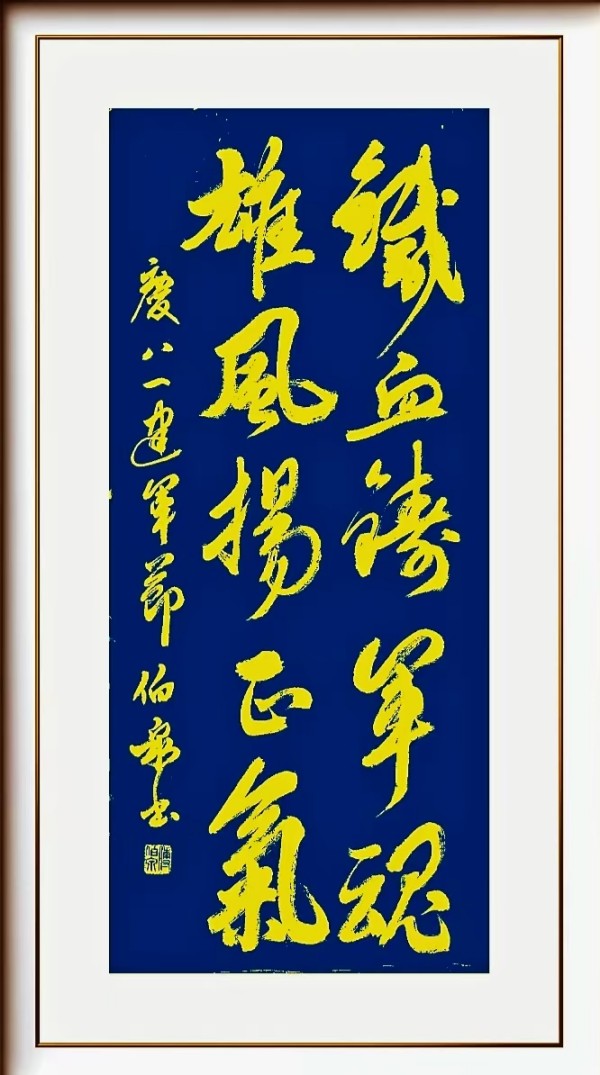 鐵血鑄軍魂
雄風揚正氣
慶八一建軍節 伯安書